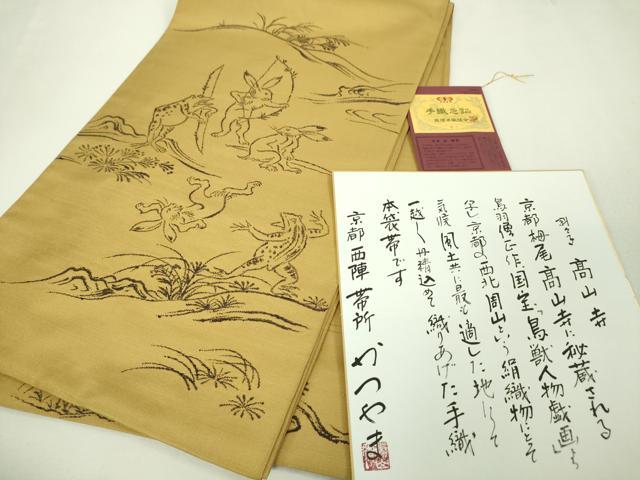 高山寺
京都栂尾高山寺に秘蔵される
鳥羽僧正作国宝「鳥獣人物戯画」
京都の西北周山という絹織物にとって
気候風土共に最も適した地に
一越一丹精込めて織りあげた手織
本袋帯です
京都西陣帯所かつやま
手織之証